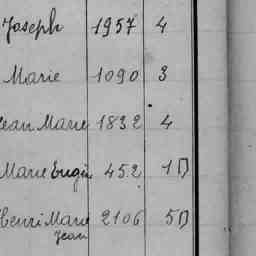 Joseph 1957 4
Marie 1090 3
Jean Marie 1832 4
Marie Eugé 452 1 D
Henri Marie 2106 5 D
Jean